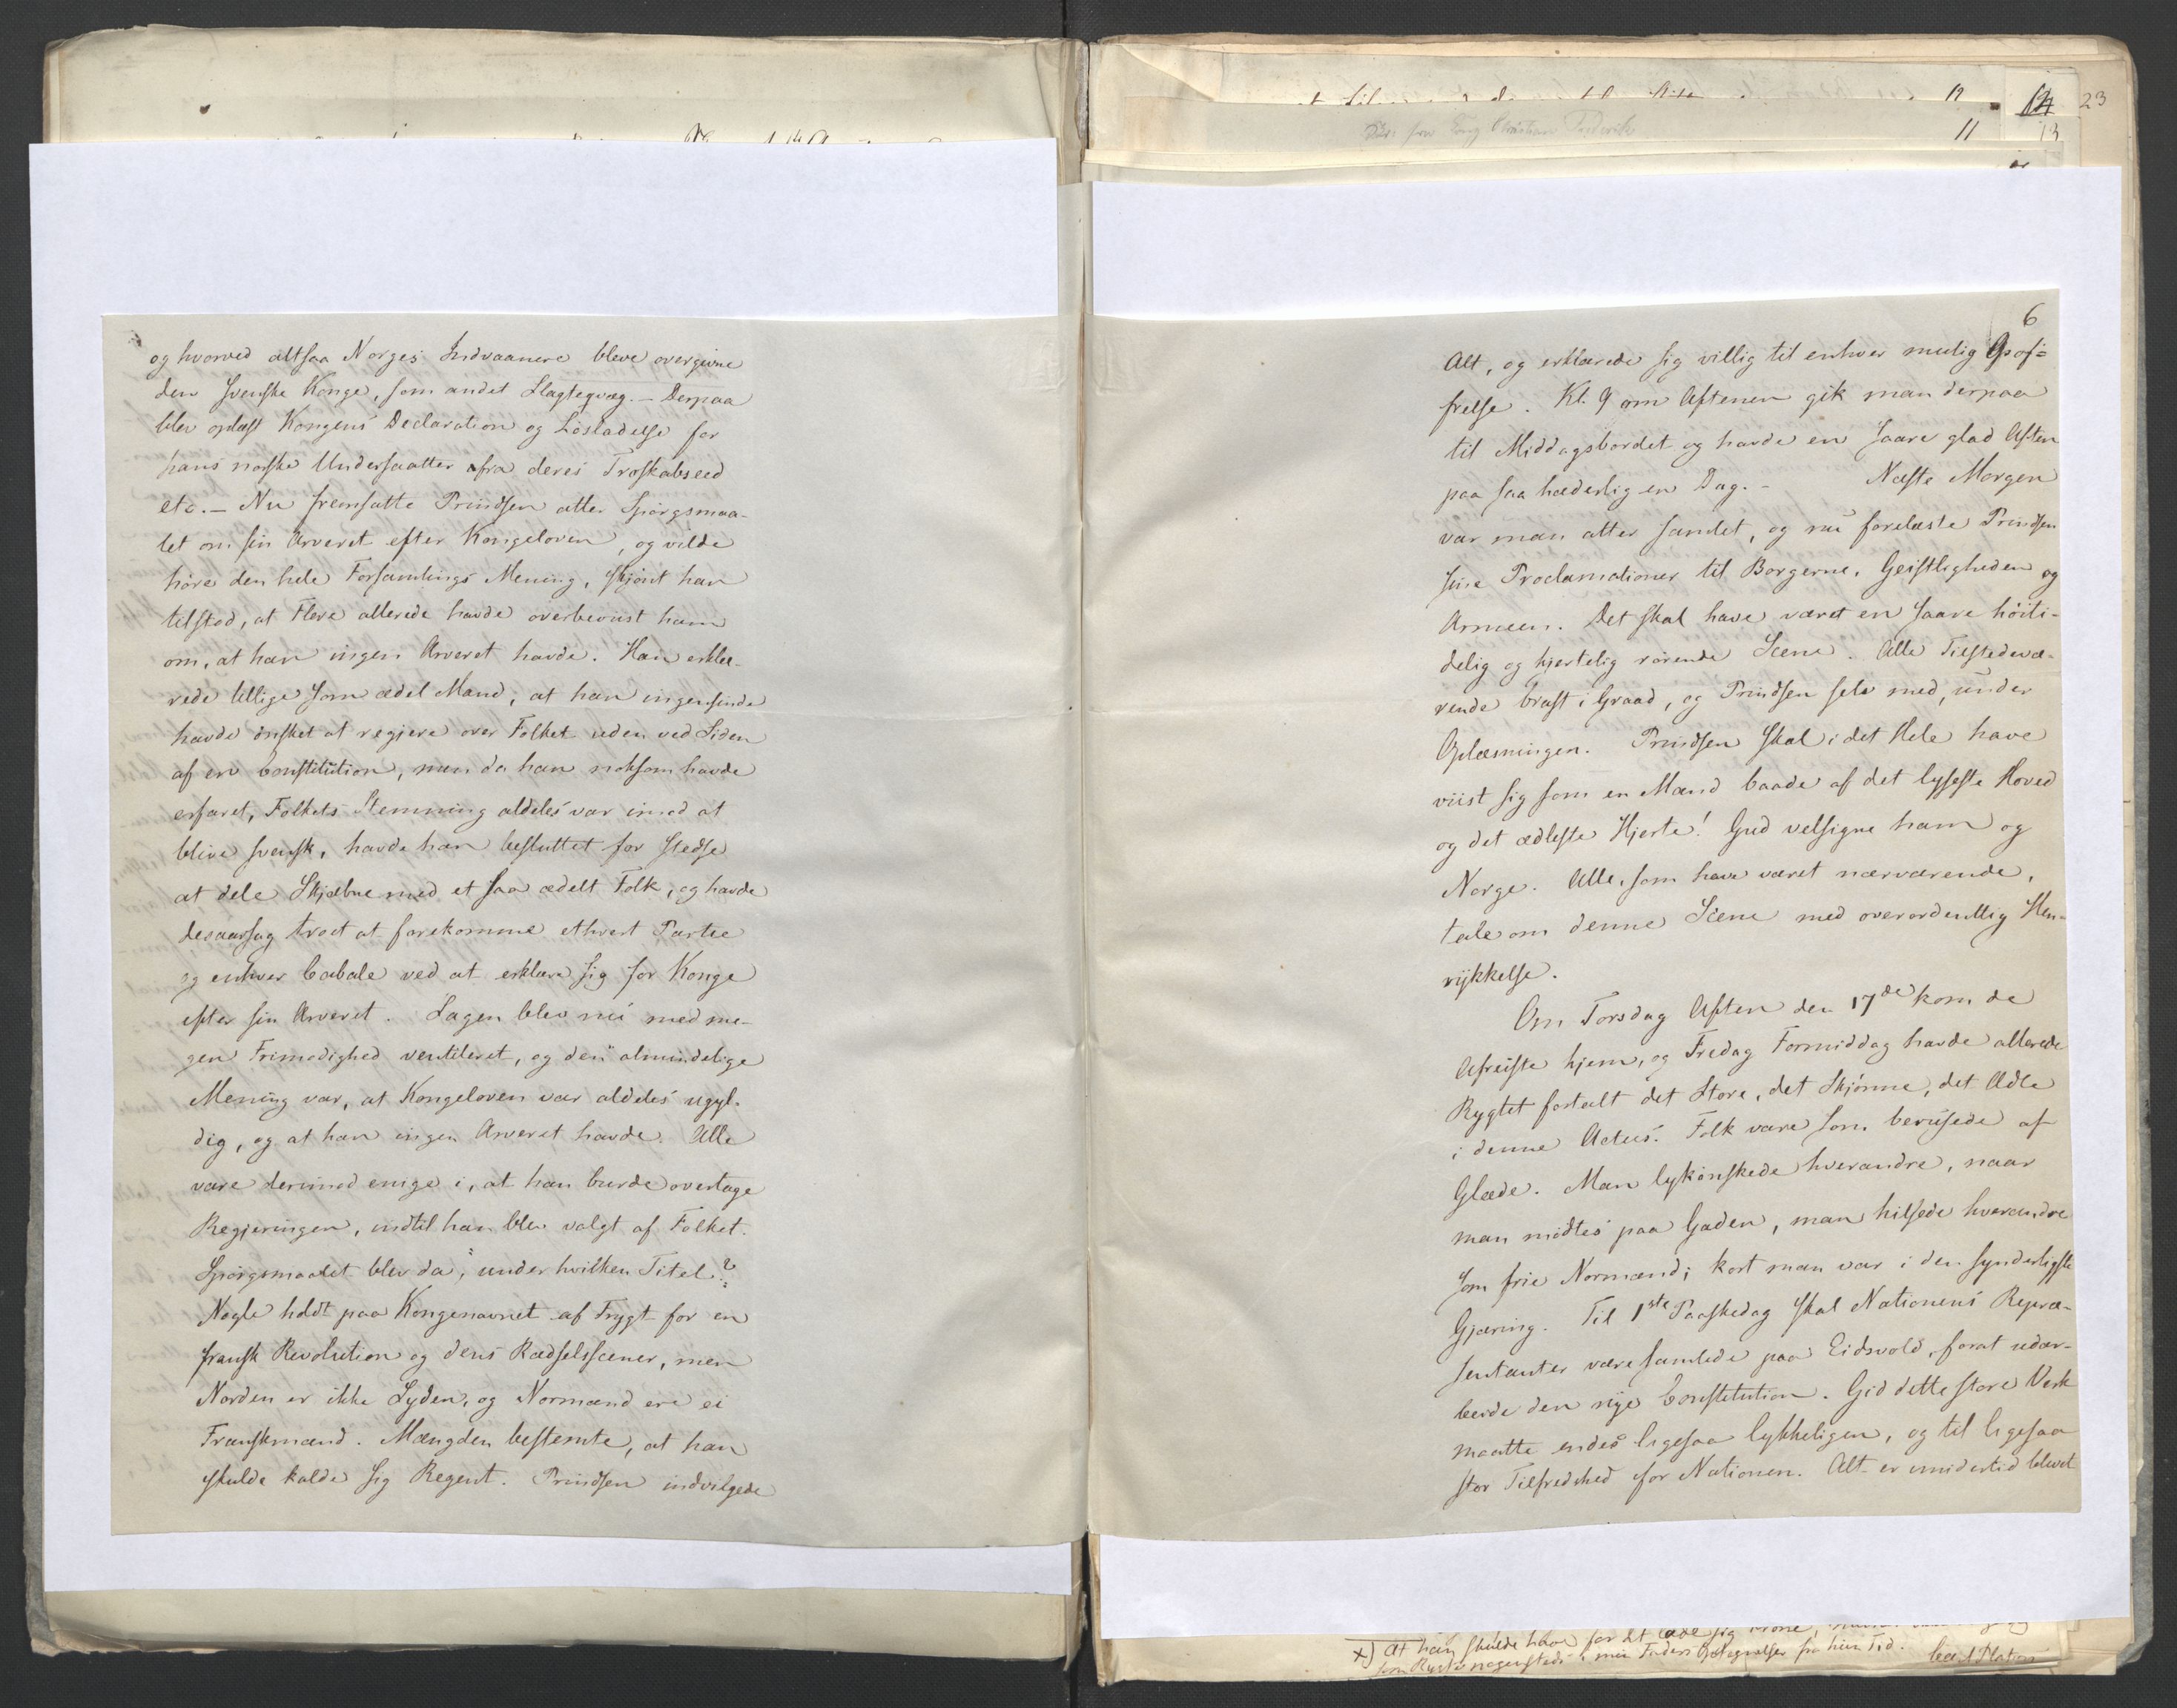 og hvorved altsaa Norges Indvaanere bleve overgivne
den svenske Konge, som andet Slagteqvæg. – Derpaa
blev oplæst Kongens Declaration og Løsladelse for
hans norske Undersaatter fra deres Troskabseed
etc. – Nu fremsatte Prindsen atter Spørgsmaa-
let om sin Arveret efter Kongeloven, og vilde
høre den hele Forsamlings Mening, skjønt han
tilstod, at Flere allerede havde overbeviist ham
om, at han ingen Arveret havde. Han erklæ-
rede tillige som ædel Mand, at han ingensinde
havde ønsket at regjere over Folket uden ved Siden
af en Constitution, men da han noksom havde
erfaret, Folkets Stemning aldeles var imod at
blive svensk, havde han besluttet for stedse
at dele Skjæbne med et saa ædelt Folk, og havde
desaarsag troet at forekomme ethvert Partie
og enhver Cabale ved at erklære sig for Konge
efter sin Arveret. Sagen blev nu med me-
gen Frimodighed ventileret, og den almindelige
Mening var, at Kongeloven var aldeles ugyl-
dig, og at han ingen Arveret havde. Alle
vare derimod enige i, at han burde overtage
Regjeringen, indtil han blev valgt af Folket.
Spørgsmaalet blev da, under hvilken Titel?
Nogle holdt paa Kongenavnet af Frygt for en
fransk Revolution og dens Rædselsscener, men
Norden er ikke Syden, og Normænd ere ei
Franskmænd. Mængden bestemte, at han
skulde kalde sig Regent. Prindsen indvilgede
12 23
11 13
6
Alt, og erklærede sig villig til enhver mulig Opof=
frelse. Kl. 9 om Aftenen gik man derpaa
til Middagsbordet og havde en saare glad Aften
paa saa hæderlig en Dag. – Næste Morgen
var man atter samlet, og nu forelæste Prindsen
sine Proclamationer til Borgerne, Geistligheden og
Armeen. Det skal have været en saare høiti-
delig og hjertelig rørende Scene. Alle Tilstedevæ-
rende brast i Graad, og Prindsen selv med, under
Oplæsningen. Prindsen skal i det Hele have
viist sig som en Mand baade af det lyseste Hoved
og det ædleste Hjerte! Gud velsigne ham og
Norge. Alle, som have været nærværende,
tale om denne Scene med overordentlig Hen-
rykkelse.
Om Torsdag Aften den 17de kom de
Afreiste hjem, og Fredag Formiddag havde allerede
Rygtet fortalt det Store, det Skjønne, det Ædle
i denne Actus. Folk vare som berusede af
Glæde. Man lykønskede hverandre, naar
man mødtes paa Gaden, man hilsede hverandre
som frie Normænd; kort man var i den synderligste
Gjæring. Til 1ste Paaskedag skal Nationens Repræ-
sentanter være samlede paa Eidsvold, forat udar-
beide den nye Constitution. Gid dette store Værk
maatte endes ligesaa lykkeligen, og til ligesaa
stor Tilfredshed for Nationen. Alt er imidlertid blevet
x) At han skulde have for at sig Krone,
som Rygte nogensteds i min Faders Optegnelser fra hiin Tid.